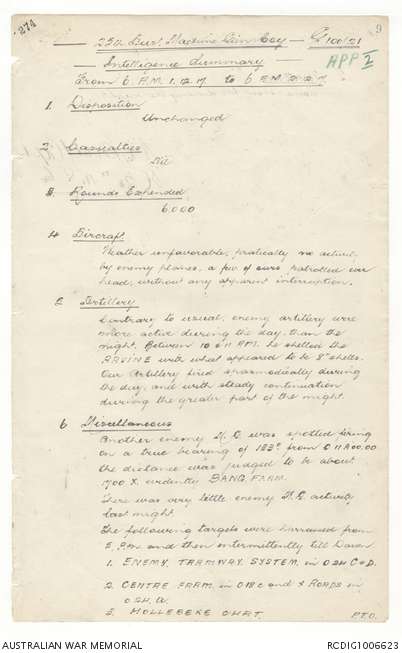 274
9
23rd Aust. Machine Gun Coy — G 100/21
APP I
Intelligence Summary
From 6 A.M. 1.12.17 to 6 A.M. 2.12.17
1. Disposition
Unchanged
2. Casualties
Nil
3. Rounds Expended
6,000
4. Aircraft
Weather unfavorable, pratically no activity
by enemy planes, a few of ours patrolled over
head, without any apparent interruption.
5. Artillery
Contrary to usual, enemy artillery were
more active during the day, than the
night. Between 10 & 11 AM. he shelled the
RAVINE with what appeared to be 8" shells.
Our Artillery fired spasmodically during
the day, and with steady continuation
during the greater part of the night.
6 Miscellaneous
Another enemy M.G. was spotted firing
on a true bearing of 123° from O 11 A 00.00
the distance was judged to be about
1700 X. evidently BANG FARM.
There was very little enemy M.G. activity
last night.
The following targets were harrassed from
5 P.M. and then intermittently till Dawn
1. ENEMY TRAMWAY SYSTEM. in O24 C & D.
2. CENTRE FARM. in O18 c and X ROADS in
O 24. a.
3. HOLLEBEKE CHAT.
P.T.O.
AUSTRALIAN WAR MEMORIAL
RCDIG1006623